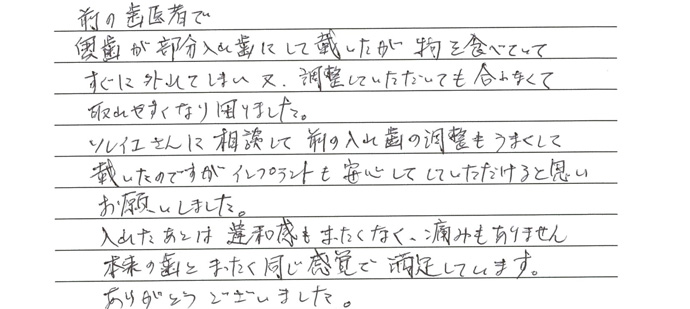 前の歯医者で
奥歯が部分入れ歯にして戴いたが物を食べていて
すぐに外れてしまい又、調整していただいても合わなくて
取れやすくなり困りました。
ソレイユさんに相談して前の入れ歯の調整もうまくして
戴いたのですがインプラントも安心してしていただけると思い
お願いしました。
入れたあとは違和感もまったくなく、痛みもありません
本来の歯とまったく同じ感覚で満足しています。
ありがとうございました。